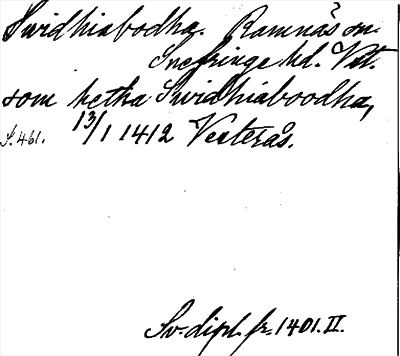 Swidhiabodha. Ramnäs sn.
Snefringe hd. Vstl.
som hetha Swidhiaboodha,
S. 461. 13/1 1412 Vesterås.
Sv. dipl. fr. 1401. II.